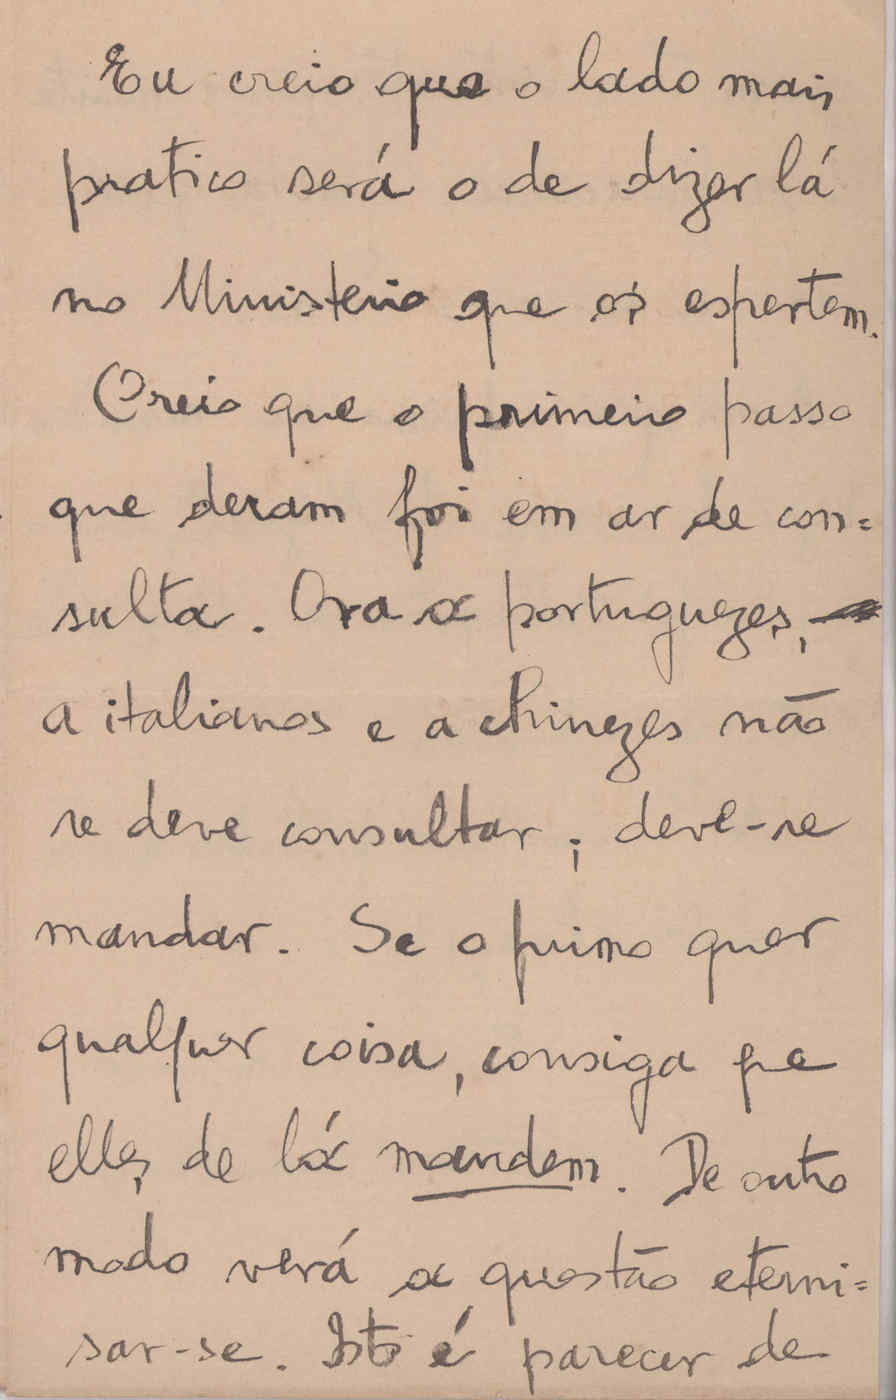 Eu creio que o lado mais
pratico será o de dizer lá
no Ministerio que os espertem.
Creio que o primeiro passo
que deram foi em ar de con=
sulta. Ora a portuguezes,
a italianos e a chinezes não
se deve consultar; deve-se
mandar. Se o primo quer
qualquer coisa, consiga que
elles de lá mandem. De outro
modo verá a questão eterni=
sar-se. Isto é parecer de